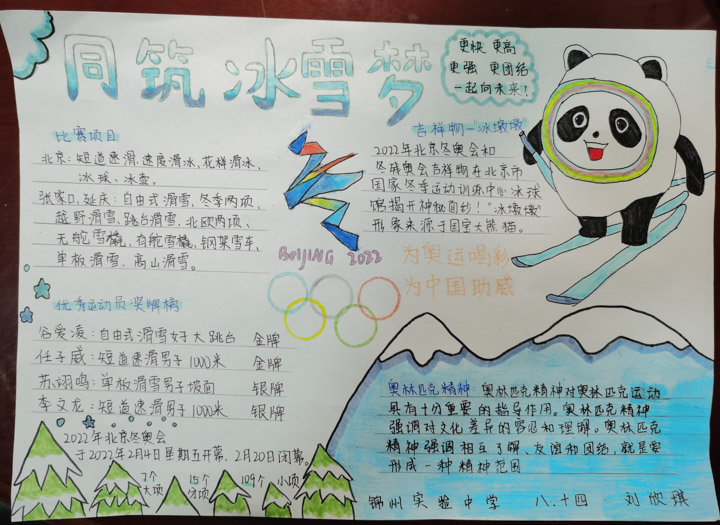 同筑冰雪梦
更快 更高
更强 更团结
一起向未来!
比赛项目
北京:短道速滑,速度滑冰,花样滑冰,
冰球、冰壶。
张家口、延庆:自由式滑雪,冬季两项、
越野滑雪,跳台滑雪,北欧两项、
无舵雪橇,有舵雪橇,钢架雪车,
单板滑雪,高山滑雪。
吉祥物—"冰墩墩"
2022年北京冬奥会和
冬残奥会吉祥物在北京市
国家冬季运动训练中心冰球
馆揭开神秘面纱!"冰墩墩"
形象来源于国宝大熊猫。
BeiJING 2022
为奥运喝彩
为中国助威
优秀运动员奖牌榜
谷爱凌:自由式滑雪女子大跳台 金牌
任子威:短道速滑男子1000米 金牌
苏翊鸣:单板滑雪男子坡面 银牌
李文龙:短道速滑男子1000米 银牌
2022年北京冬奥会
于2022年2月4日星期五开幕,2月20日闭幕。
7个大项 15个分项 109个小项
奥林匹克精神 奥林匹克精神对奥林匹克运动
具有十分重要的指导作用。奥林匹克精神
强调对文化差异的容忍和理解。奥林匹克
精神强调相互了解、友谊和团结,就是要
形成一种精神范围
锦州实验中学 八.十四 刘欣琪